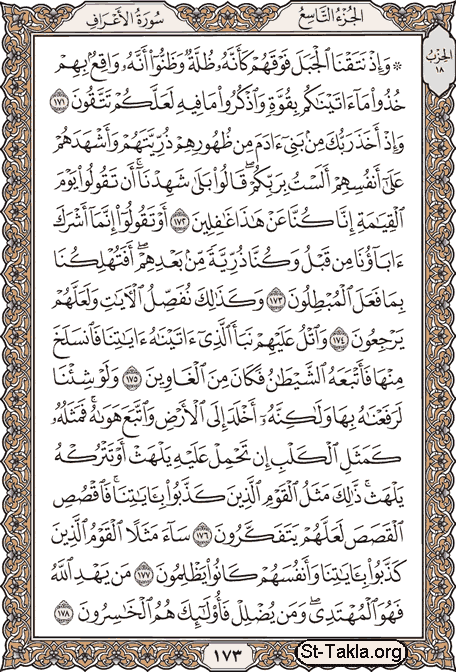 سُورَةُ الأَعْرَافِ
الجُزْءُ التَّاسِعُ
الحِزْبُ
١٨
۞ وَإِذْ نَتَقْنَا ٱلْجَبَلَ فَوْقَهُمْ كَأَنَّهُۥ ظُلَّةٌ وَظَنُّوٓا۟ أَنَّهُۥ وَاقِعٌۢ بِهِمْ
خُذُوا۟ مَآ ءَاتَيْنَـٰكُم بِقُوَّةٍ وَٱذْكُرُوا۟ مَا فِيهِ لَعَلَّكُمْ تَتَّقُونَ ١٧١
وَإِذْ أَخَذَ رَبُّكَ مِنۢ بَنِىٓ ءَادَمَ مِن ظُهُورِهِمْ ذُرِّيَّتَهُمْ وَأَشْهَدَهُمْ
عَلَىٰٓ أَنفُسِهِمْ أَلَسْتُ بِرَبِّكُمْ ۖ قَالُوا۟ بَلَىٰ شَهِدْنَآ ۛ أَن تَقُولُوا۟ يَوْمَ
ٱلْقِيَـٰمَةِ إِنَّا كُنَّا عَنْ هَـٰذَا غَـٰفِلِينَ ١٧٢ أَوْ تَقُولُوٓا۟ إِنَّمَآ أَشْرَكَ
ءَابَآؤُنَا مِن قَبْلُ وَكُنَّا ذُرِّيَّةً مِّنۢ بَعْدِهِمْ ۖ أَفَتُهْلِكُنَا
بِمَا فَعَلَ ٱلْمُبْطِلُونَ ١٧٣ وَكَذَٰلِكَ نُفَصِّلُ ٱلْـَٔايَـٰتِ وَلَعَلَّهُمْ
يَرْجِعُونَ ١٧٤ وَٱتْلُ عَلَيْهِمْ نَبَأَ ٱلَّذِىٓ ءَاتَيْنَـٰهُ ءَايَـٰتِنَا فَٱنسَلَخَ
مِنْهَا فَأَتْبَعَهُ ٱلشَّيْطَـٰنُ فَكَانَ مِنَ ٱلْغَاوِينَ ١٧٥ وَلَوْ شِئْنَا
لَرَفَعْنَـٰهُ بِهَا وَلَـٰكِنَّهُۥٓ أَخْلَدَ إِلَى ٱلْأَرْضِ وَٱتَّبَعَ هَوَىٰهُ ۚ فَمَثَلُهُۥ
كَمَثَلِ ٱلْكَلْبِ إِن تَحْمِلْ عَلَيْهِ يَلْهَثْ أَوْ تَتْرُكْهُ
يَلْهَث ۚ ذَّٰلِكَ مَثَلُ ٱلْقَوْمِ ٱلَّذِينَ كَذَّبُوا۟ بِـَٔايَـٰتِنَا ۚ فَٱقْصُصِ
ٱلْقَصَصَ لَعَلَّهُمْ يَتَفَكَّرُونَ ١٧٦ سَآءَ مَثَلًا ٱلْقَوْمُ ٱلَّذِينَ
كَذَّبُوا۟ بِـَٔايَـٰتِنَا وَأَنفُسَهُمْ كَانُوا۟ يَظْلِمُونَ ١٧٧ مَن يَهْدِ ٱللَّهُ
فَهُوَ ٱلْمُهْتَدِى ۖ وَمَن يُضْلِلْ فَأُو۟لَـٰٓئِكَ هُمُ ٱلْخَـٰسِرُونَ ١٧٨
١٧٣
St-Takla.org